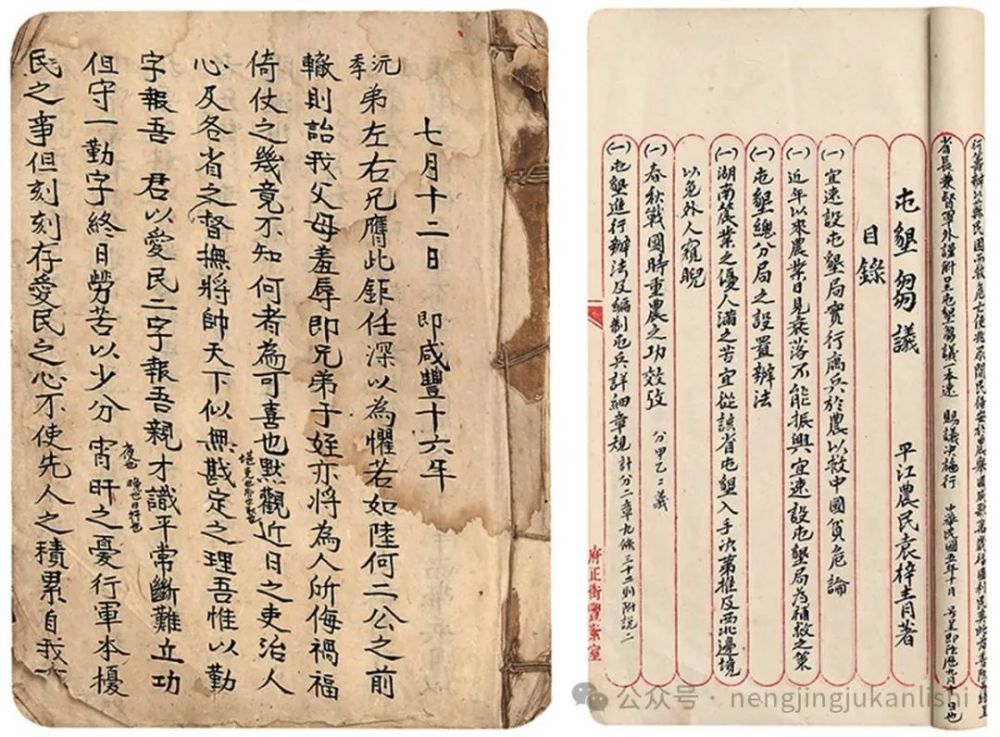 七月十二日 即咸豐十六年
沅季弟左右兄膺此鉅任深以為懼若如陸何二公之前
轍則詒我父母羞辱即兄弟子姪亦將為人所侮禍福
倚仗之幾竟不知何者為可喜也默觀近日之吏治人
心及各省之督撫將帥天下似無戡定之理吾惟以勤
字報吾 君以愛民二字報吾親才識平常斷難立功
夜也 晚也日旰也
但守一勤字終日勞苦以少分宵旰之憂行軍本擾
民之事但刻刻存愛民之心不使先人之積累自我
行籌辦以蘇民困而救危亡使
省長兼督軍外謹附呈屯墾芻議一本速 賜議決施行 中華民國五年十月 即陰曆九月
屯墾芻議 平江農民袁梓青著
目錄
(一)宜速設屯墾局實行寓兵於農以救中國貧危論
(一)近年以來農業日見衰落不能振興宜速設屯墾局為補救之策
(一)屯墾總分局之設置辦法
(一)湖南農業之優人滿之苦宜從該省屯墾入手次第推及西北邊境
以免外人窺睨
(一)春秋戰國時重農之功效攷 分甲乙二議
(一)屯墾進行辦法及編制屯兵詳細章規 計分二章九條三十二則附說二
府正街豐業室
公众号 · nengjingjukanlishi